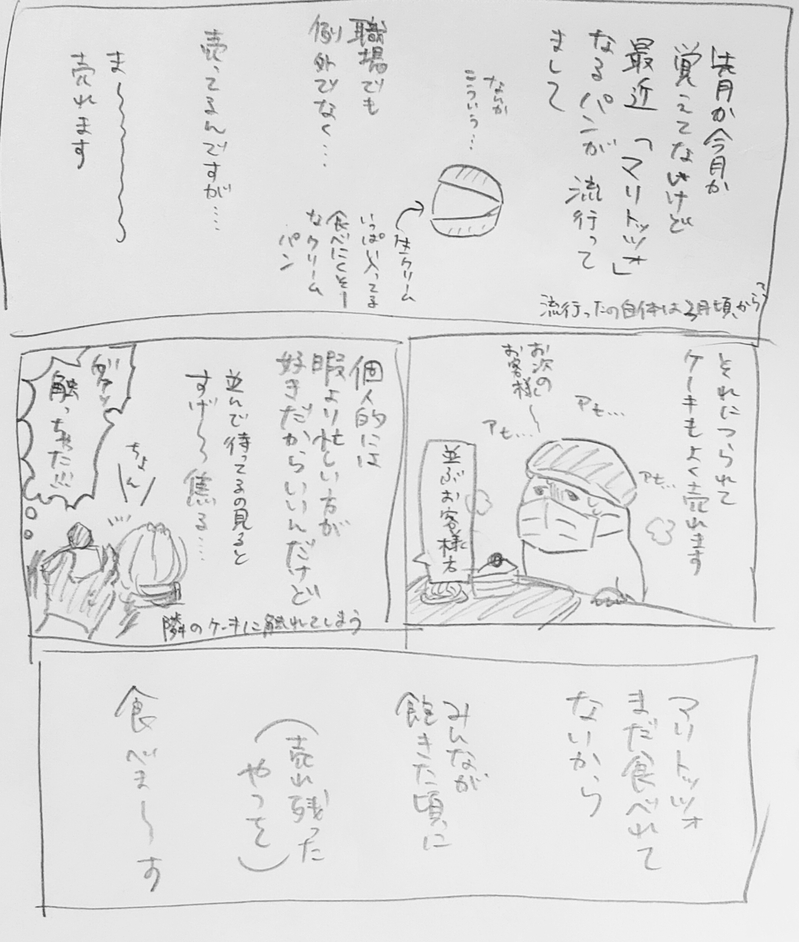 先月か今月か
覚えてないけど
最近「マリトッツォ」
なるパンが流行って
まして
なんか
こういう…
生クリーム
いっぱい入ってる
食べにくそー
なクリーム
パン
職場でも
例外でなく…
売ってるんですが…
ま〜〜〜〜〜
売れます
流行ったの自体は3月頃から
それにつられて
ケーキもよく売れます
お次の
お客様〜
アセ…
アセ…
アセ…
並ぶお客様方
個人的には
暇より忙しい方が
好きだからいいんだけど
並んで待ってるの見ると
すげ〜焦る…
ちょん
触っちゃた!!!
隣のケーキに触れてしまう
マリトッツォ
まだ食べれて
ないから
みんなが
飽きた頃に
(売れ残った
やつを)
食べま〜す